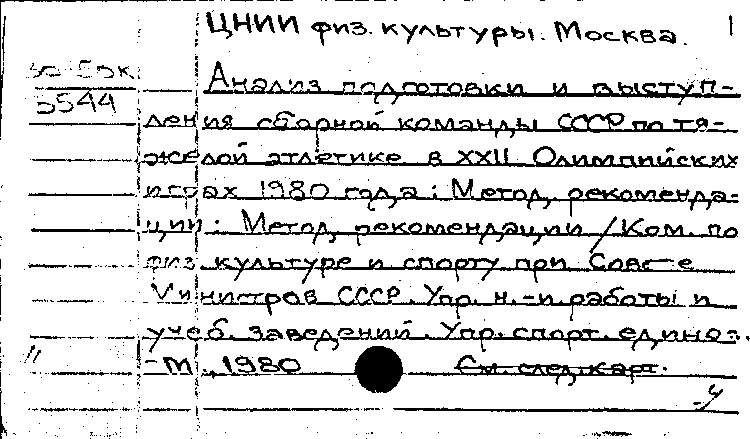 ЦНИИ физ. культуры. Москва. 1
5544
Анализ подготовки и выступ-
ления сборной команды СССР по тя-
желой атлетике в XXII Олимпийских
играх 1980 года: Метод. рекоменда-
ции: Метод, рекомендации / Ком. по
физ культуре и спорту при Совете
Министров СССР. Упр. н.-и работы и
учеб. заведений. Упр. спорт. единоб.
-М., 1980 См. след. карт.